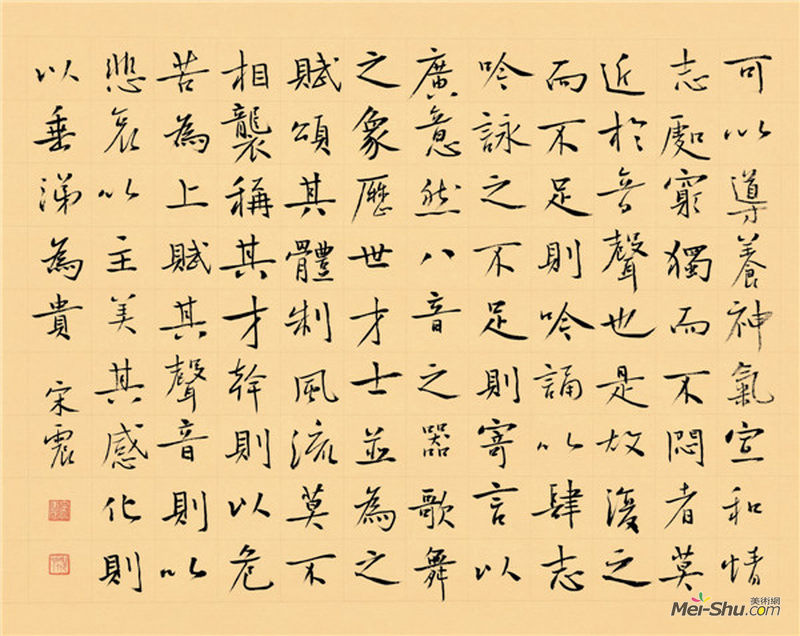 可以導養神氣宣和情
志處窮獨而不悶者莫
近於音聲也是故復之
而不足則吟誦以肆志
吟詠之不足則寄言以
廣意然八音之器歌舞
之象歷世才士並為之
賦頌其體制風流莫不
相襲稱其才幹則以危
苦為上賦其聲音則以
悲哀以主美其感化則
以垂涕為貴
宋震
美術網
Mei-Shu.com